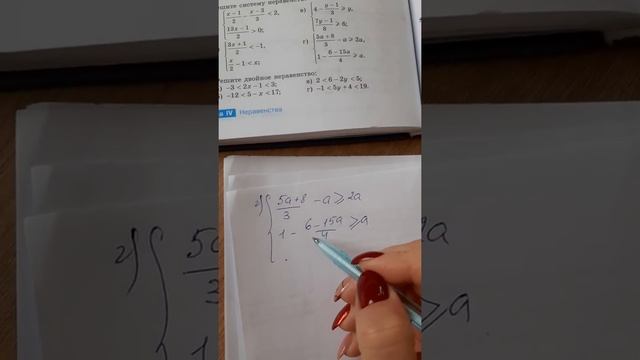 ешите систему неравенств
{ (x−1)/2 − (x−3)/3 < 2,
(13x−1)/2 > 0;
{ (3x+1)/2 < −1,
x/2 − 1 < x;
в) { 4 − (y−1)/3 ≥ y,
(7y−1)/8 ≥ 6;
г) { (5a+8)/3 − a ≥ 2a,
1 − (6−15a)/4 ≥ a.
ешите двойное неравенство:
) −3 < 2x − 1 < 3;
) −12 < 5 − x < 17;
в) 2 < 6 − 2y < 5;
г) −1 < 5y + 4 < 19.
а IV Неравенства
г) { (5a+8)/3 − a ≥ 2a
1 − (6−15a)/4 ≥ a